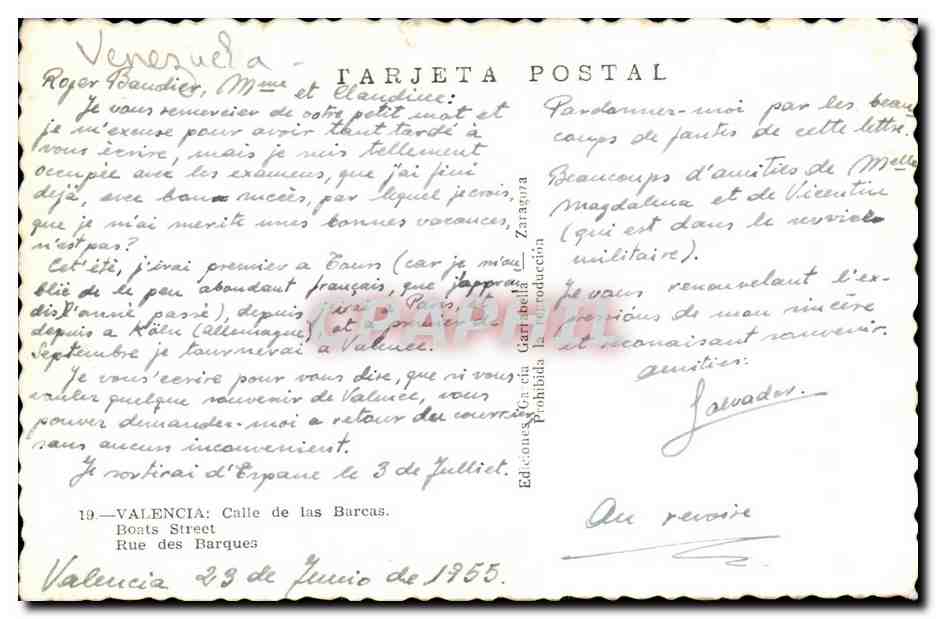 Venezuela
TARJETA POSTAL
Roger Baudier, Mme et Claudine:
Je vous remercier de votre petit mot et
je m'excuse pour avoir tant tardé à
vous ècrire, mais je suis tellement
occupée avec les examens, que j'ai fini
dejà, avec bon succès, par lequel je crois,
que je m'ai merité unes bonnes vacances,
n'est pas?
Cet'été, j'irai premier a Tours (car je m'ou
blié de le peu abondant français, que j'appren
dis l'anné passé), depuis a Paris,
depuis a Köln (Allemagne) et a
Septembre je tournerai a Valence.
Je vous'ecrire pour vous dire, que si vous
voulez quelque souvenir de Valence, vous
pouvez demander-moi a retour du courrier,
sans aucun inconvenient.
Je sortirai d'Espane le 3 de Julliet.
19.—VALENCIA: Calle de las Barcas.
Boats Street
Rue des Barques
Valencia 23 de Junio de 1955.
Ediciones García Garrabella — Zaragoza
Prohibida la reproducción
CPAPHIL
Pardonnez-moi par les beau
coups de fautes de cette lettre.
Beaucoups d'amitiés de Melle
Magdalena et de Vicentin
(qui est dans le service
militaire).
Je vous renouvelant l'ex-
pressions de mon sincère
et reconaisant souvenir.
Amities:
Salvador.
Au revoire